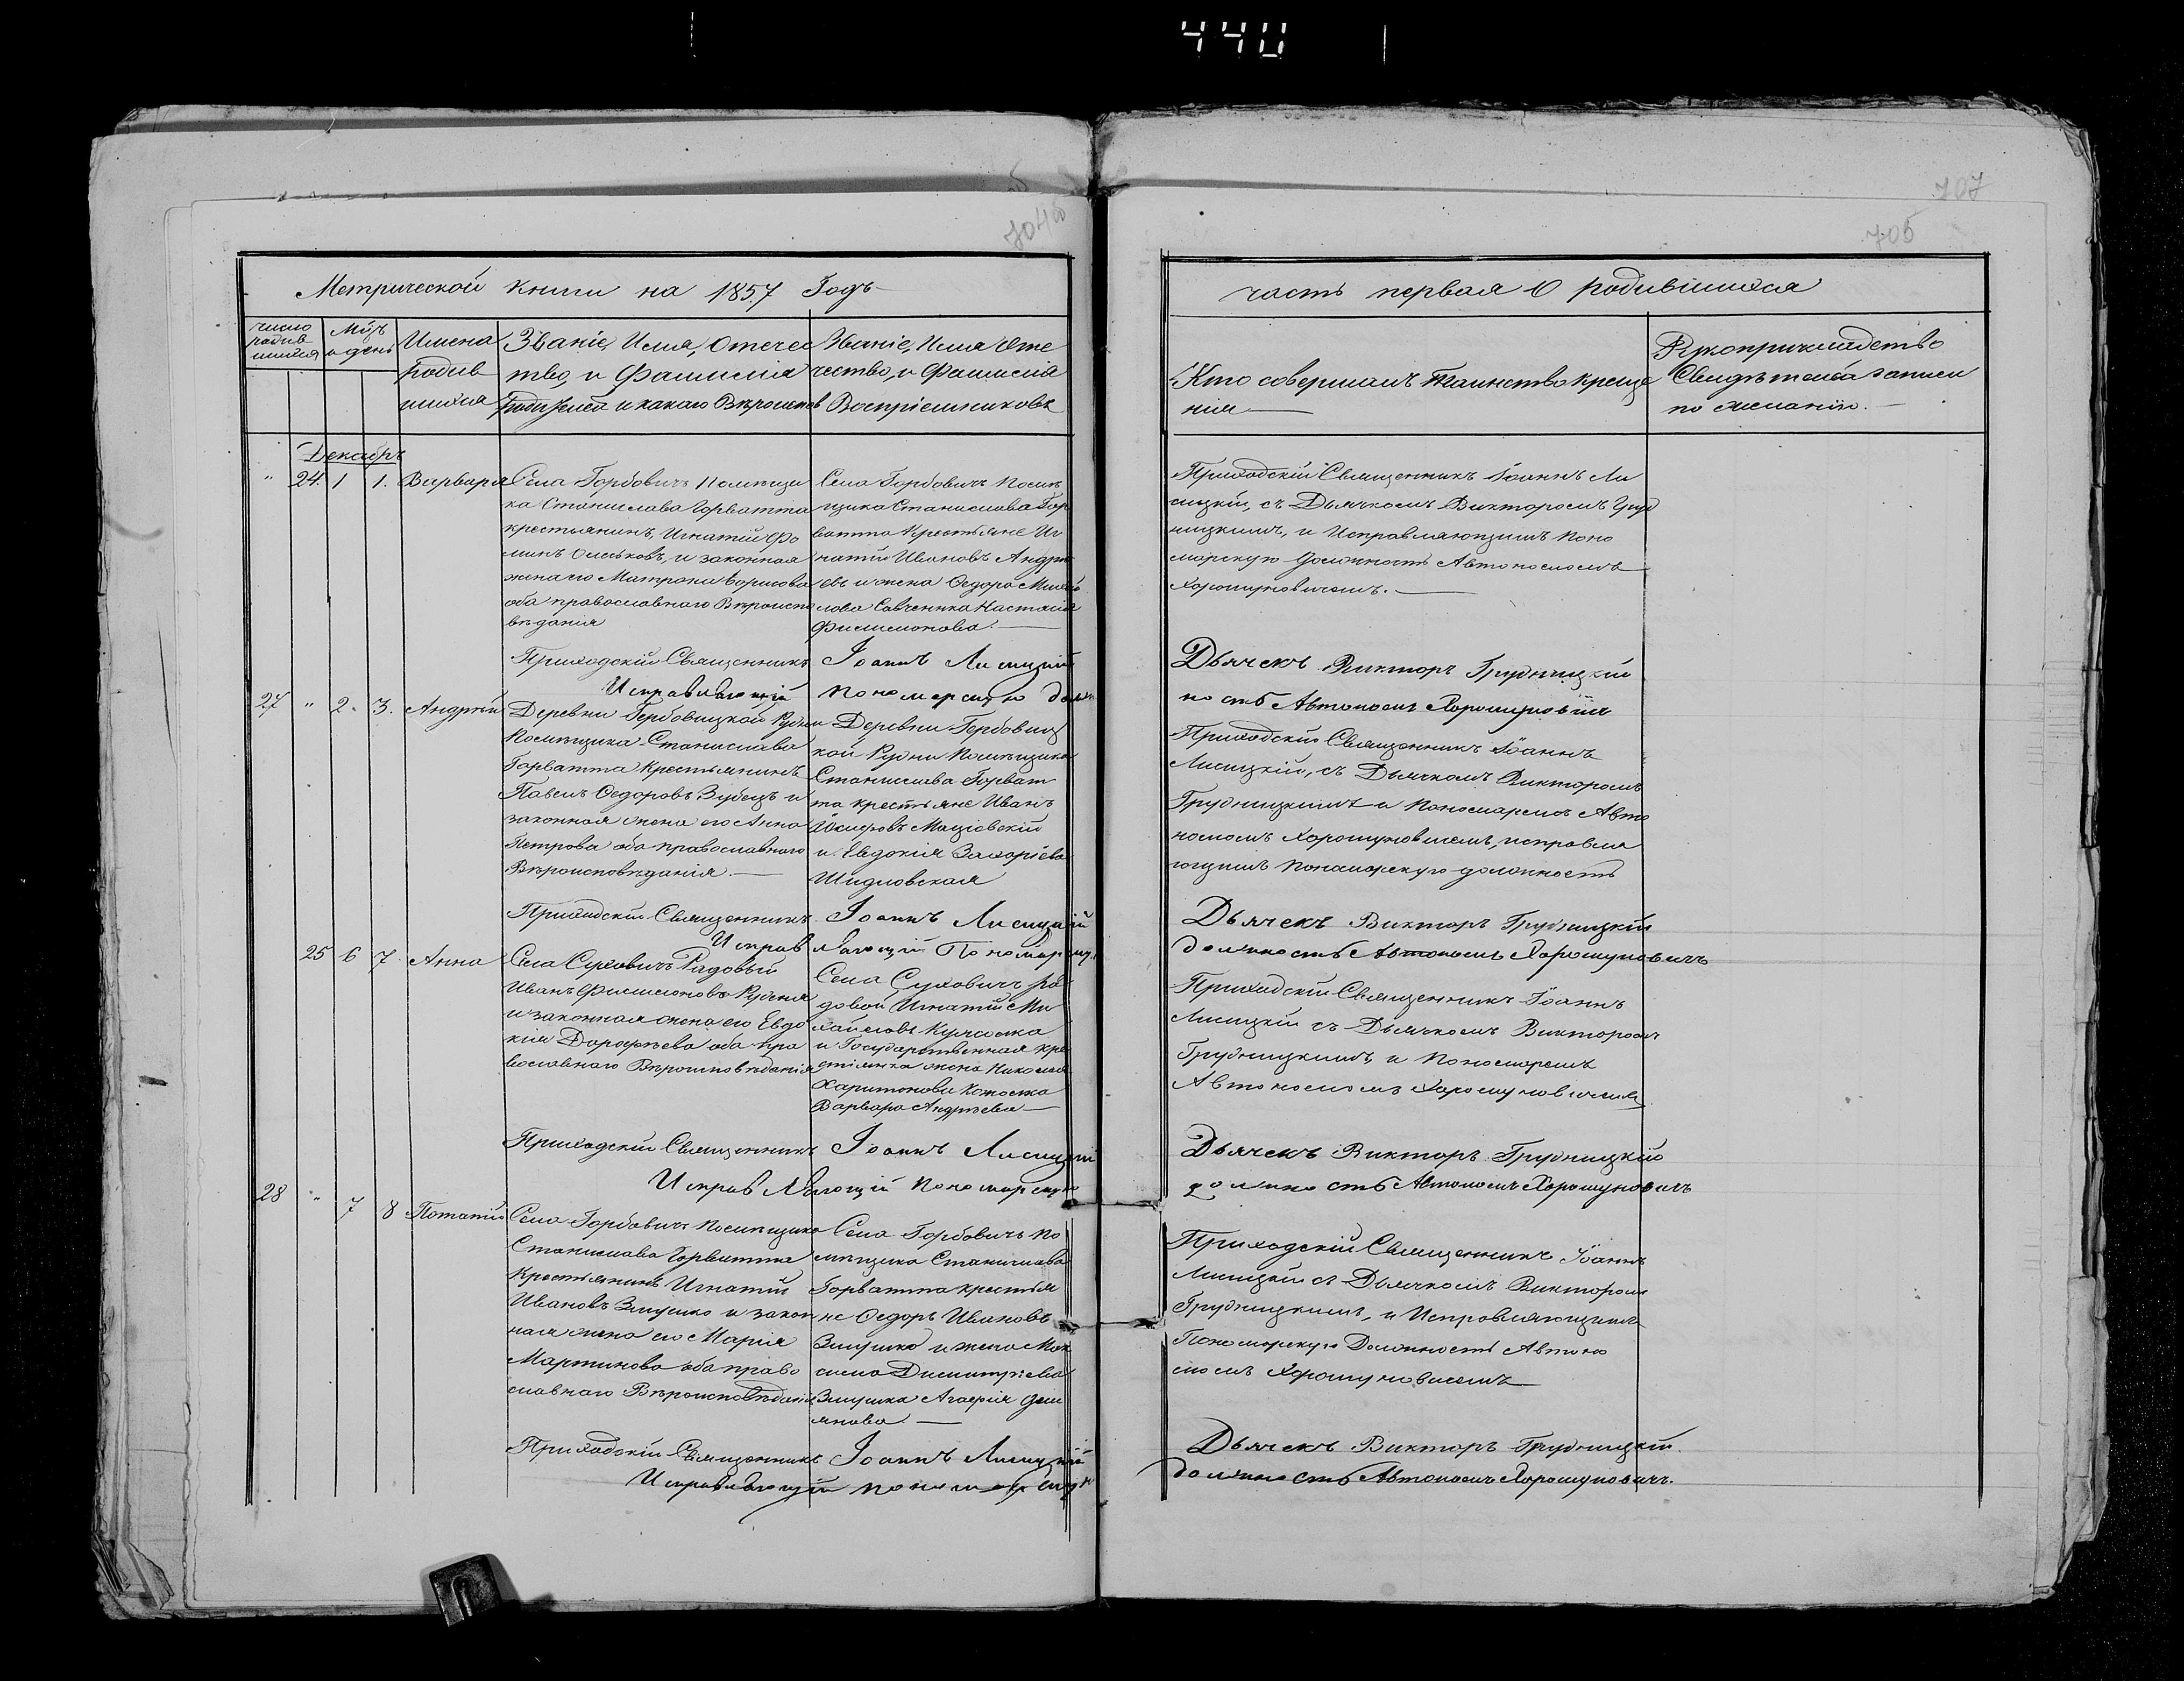 440
707
704об
705
Метрической книги на 1857 Годъ
часть первая О родившихся
число родив шихся
Мцъ и день
Имена родив шихся
Званіе, Имя, Отечес
тво, и Фамилия
Родителей и какого Вѣроиспов
Званіе, Имя Оте
чество, и Фамилія
Воспріемниковъ
Кто совершалъ Таинство креще
нія
Рукоприкладство
Свидѣтелей записи
по желанію.
Декабрь
" 24. 1 1. Варвара
Села Горбовичъ помѣщи
ка Станислава Горватта
крестьянинъ, Игнатій Фо
минъ и законная
жена его Матрона Борисова
оба православнаго Вѣроиспо
вѣданія
Села Горбовичъ помѣ
щика Станислава Гор
ватта Крестьяне Иг
натій Ивановъ Андре
евъ и жена Ѳедора Михай
лова Савченка Настасія
Филимонова.
Приходскій Священникъ Іоаннъ Ли
сицкій, съ Дьячкомъ Викторомъ Груд
ницкимъ, и Исправляющимъ Поно
марскую должность Автономомъ
Хорошуновичемъ.
Приходскій Священникъ Іоаннъ Лисицкій
Дьячекъ Викторъ Грудницкій
Исправляющій пономарскую долж
ность Автономъ Хорошуновичъ
27 " 2. 3. Андрей
Деревни Горбовицкой Рудни
Помѣщика Станислава
Горватта Крестьянинъ
Павелъ Ѳедоровъ Зубецъ и
законная жена его Анна
Петрова оба православнаго
Вѣроисповѣданія.
Деревни Горбовиц
кой Рудни Помѣщика
Станислава Горват
та крестьяне Иванъ
Іосифовъ
и Евдокія Захаріева
Шидловская
Приходскій Священникъ Іоаннъ
Лисицкій, съ Дьячкомъ Викторомъ
Грудницкимъ и Пономаремъ Авто
номомъ Хорошуновичемъ, исправля
ющимъ Понамарскую должность
Приходскій Священникъ Іоаннъ Лисицкій
Дьячекъ Викторъ Грудницкій
Исправляющій Пономарскую
должность Автономъ Хорошуновичъ
25 6 7. Анна
Села Суховичъ Рядовый
Иванъ Филимоновъ
и законная жена его Евдо
кія Дорофѣева оба пра
вославнаго Вѣроисповѣданія
Села Суховичъ ря
довой Игнатій Ми
хайловъ
и Государственная кре
стьянка жена Николая
Харитонова
Варвара Андреева
Приходскій Священникъ Іоаннъ
Лисицкій съ Дьячкомъ Викторомъ
Грудницкимъ, и Пономаремъ
Автономомъ Хорошуновичемъ
Приходскій Священникъ Іоаннъ Лисицкій
Дьячекъ Викторъ Грудницкій
Исправляющій пономарскую
должность Автономъ Хорошуновичъ
28 " 7 8 Потапій
Села Горбовичъ помѣщика
Станислава Горватта
Крестьянинъ Игнатій
Ивановъ Змушко и закон
ная жена его Марія
Мартинова оба право
славнаго Вѣроисповѣданія
Села Горбовичъ по
мѣщика Станислава
Горватта крестья
не Ѳедоръ Ивановъ
Змушко и жена Мак
сима Димитріева
Змушка Агафія Деми
янова
Приходскій Священникъ Іоаннъ
Лисицкій съ Дьячкомъ Викторомъ
Грудницкимъ, и Исправляющимъ
Пономарскую Должность Автоно
момъ Хорошуновичемъ
Приходскій Священникъ Іоаннъ Лисицкій
Дьячекъ Викторъ Грудницкій
Исправляющій пономарскую
должность Автономъ Хорошуновичъ.